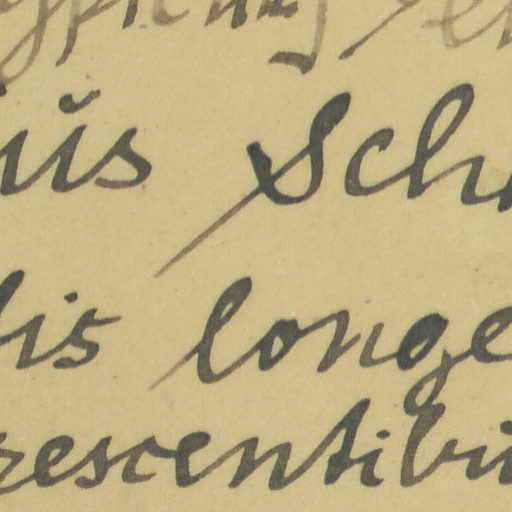 ŭs Sch
lis longe
rescentibu